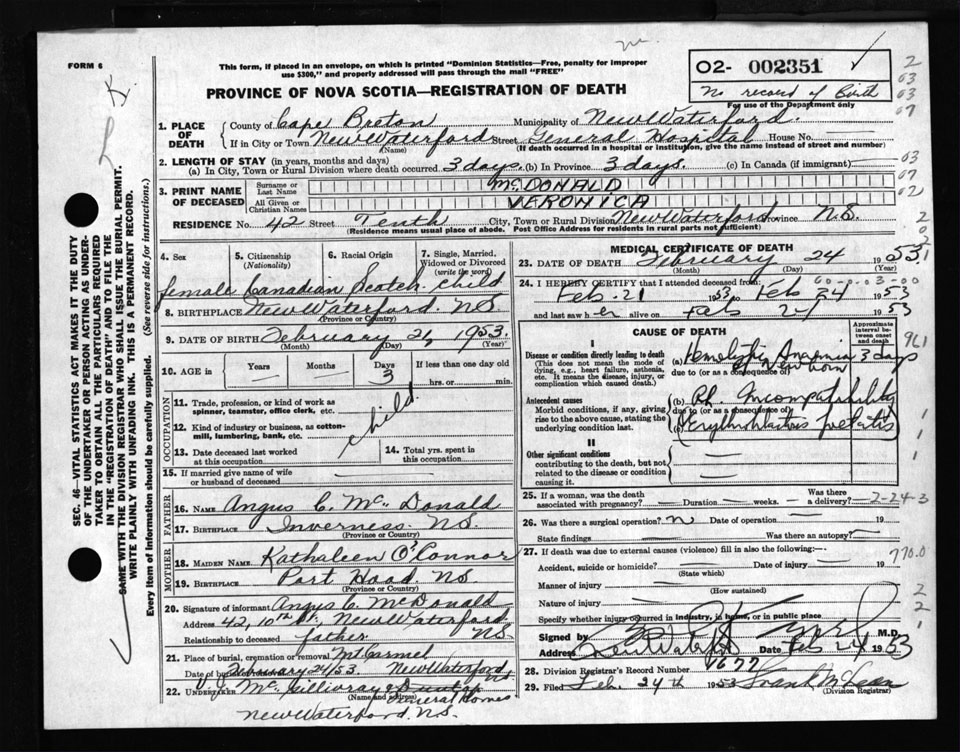 FORM 6
This form, if placed in an envelope, on which is printed "Dominion Statistics—Free, penalty for improper
use $300," and properly addressed will pass through the mail "FREE"
02- 002351
No record of Birth
For use of the Department only
PROVINCE OF NOVA SCOTIA—REGISTRATION OF DEATH
1. PLACE OF DEATH County of Cape Breton Municipality of New Waterford
If in City or Town New Waterford Street General Hospital House No.
(Name) (If death occurred in a hospital or institution, give the name instead of street and number)
2. LENGTH OF STAY (in years, months and days)
(a) In City, Town or Rural Division where death occurred 3 days (b) In Province 3 days. (c) In Canada (if immigrant)
3. PRINT NAME OF DECEASED Surname or Last Name McDONALD
All Given or Christian Names VERONICA
RESIDENCE No. 42 Street Tenth City, Town or Rural Division New Waterford Province N.S.
(Residence means usual place of abode. Post Office Address for residents in rural parts not sufficient)
4. Sex female
5. Citizenship (Nationality) Canadian
6. Racial Origin Scotch
7. Single, Married, Widowed or Divorced (write the word) child
8. BIRTHPLACE New Waterford. N.S.
(Province or Country)
9. DATE OF BIRTH February 21, 1953.
(Month) (Day) (Year)
10. AGE in Years — Months — Days 3 If less than one day old hrs. or min.
OCCUPATION
11. Trade, profession, or kind of work as spinner, teamster, office clerk, etc.
child
12. Kind of industry or business, as cotton-mill, lumbering, bank, etc.
13. Date deceased last worked at this occupation
14. Total yrs. spent in this occupation
15. If married give name of wife or husband of deceased
FATHER
16. Name Angus C. McDonald
17. Birthplace Inverness. N.S.
(Province or Country)
MOTHER
18. MAIDEN NAME Kathaleen O'Connor
19. Birthplace Port Hood. NS
(Province or Country)
20. Signature of informant Angus C. McDonald
Address 42, 10th St., New Waterford NS.
Relationship to deceased father
21. Place of burial, cremation or removal Mt. Carmel
Date of burial February 24/53. New Waterford NS
22. Undertaker McGillivray & Dunlap Funeral Homes
(Name and address)
New Waterford, N.S.
MEDICAL CERTIFICATE OF DEATH
23. DATE OF DEATH February 24 1953
(Month) (Day) (Year)
24. I HEREBY CERTIFY that I attended deceased from
Feb. 21 1953 to Feb 24 1953
and last saw her alive on Feb 24 1953
CAUSE OF DEATH
Approximate interval between onset and death
I
Disease or condition directly leading to death
(This does not mean the mode of dying, e.g., heart failure, asthenia, etc. It means the disease, injury, or complication which caused death.)
(a) Hemolytic Anaemia of Newborn 3 days
due to (or as a consequence of)
Antecedent causes
Morbid conditions, if any, giving rise to the above cause, stating the underlying condition last.
(b) Rh. Incompatability
due to (or as a consequence of)
(c) Erythroblastosis foetalis
II
Other significant conditions
contributing to the death, but not related to the disease or condition causing it.
25. If a woman, was the death associated with pregnancy? — Duration — weeks. — Was there a delivery?
2-24-3
26. Was there a surgical operation? n Date of operation — 19
State findings Was there an autopsy?
27. If death was due to external causes (violence) fill in also the following:—
Accident, suicide or homicide? Date of injury 19
(State which)
Manner of injury
(How sustained)
Nature of injury
Specify whether injury occurred in industry, in home, or in public place
Signed by M.D.
Address New Waterford Date Feb 24 1953
28. Division Registrar's Record Number 1677
29. Filed Feb. 24th 1953 Frank McLean
(Division Registrar)
SEC. 46—VITAL STATISTICS ACT MAKES IT THE DUTY
OF THE UNDERTAKER OR PERSON ACTING AS UNDER-
TAKER TO OBTAIN ALL THE PARTICULARS REQUIRED
IN THE "REGISTRATION OF DEATH" AND TO FILE THE
SAME WITH THE DIVISION REGISTRAR WHO SHALL ISSUE THE BURIAL PERMIT.
WRITE PLAINLY WITH UNFADING INK. THIS IS A PERMANENT RECORD.
Every item of information should be carefully supplied. (See reverse side for instructions.)
2
03
03
07
03
07
02
961
770.0